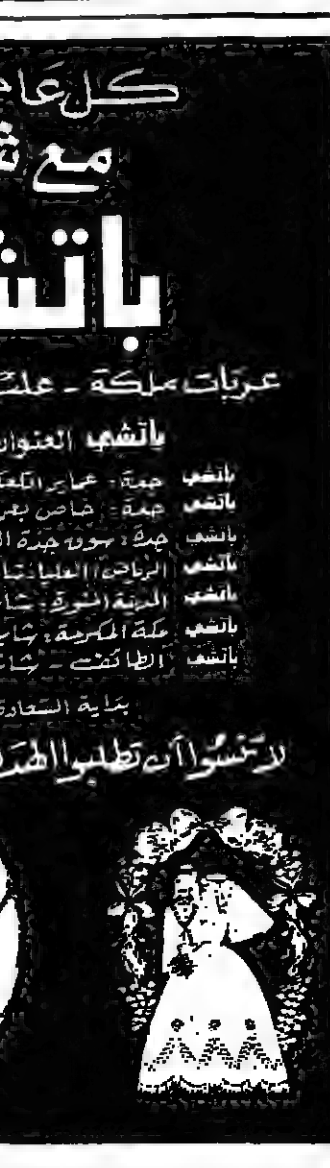 كل عا
مع ش
باتش
عربات ملكة - علب
باتشي العنوان
باتشي جدة: عماير الكعكي
باتشي جدة: خاص بعر
باتشي جدة: سوق جدة ال
باتشي الرياض: العليا: شا
باتشي المدينة المنورة: شا
باتشي مكة المكرمة: شا
باتشي الطائف - شا
بداية السعادة
لا تنسوا أن تطلبوا الهدا